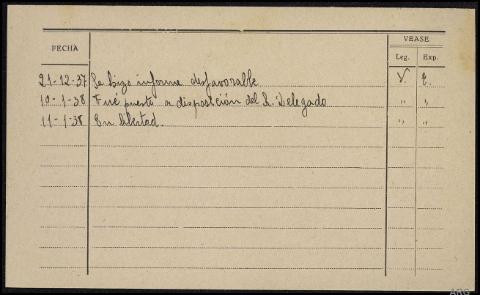 FECHA
VEASE
Leg. Exp.
21-12-37 Se hizo informe desfavorable V. E.
10-1-38 Fué puesto a disposición del S. Delegado " "
11-1-38 En libertad. " "